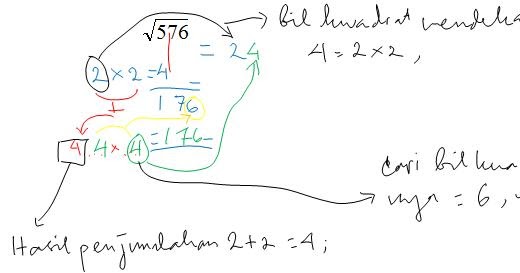 √576 = 24
Bil kwadrat
4 = 2 x 2 ,
2 x 2 = 4
176
+
4 . 4 x . 4 = 176
cari bil kua
nya = 6 ,
Hasil penjumlahan 2+2 = 4 ;